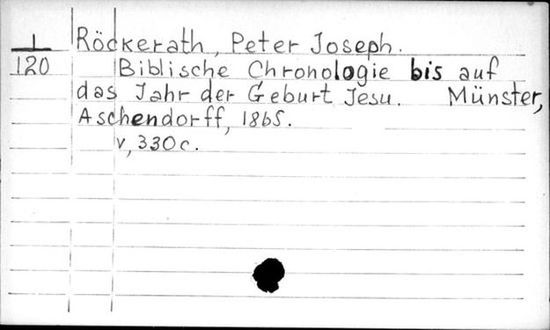 1 Röckerath, Peter Joseph.
120 Biblische Chronologie bis auf
das Jahr der Geburt Jesu. Münster,
Aschendorff, 1865.
v, 330 c.